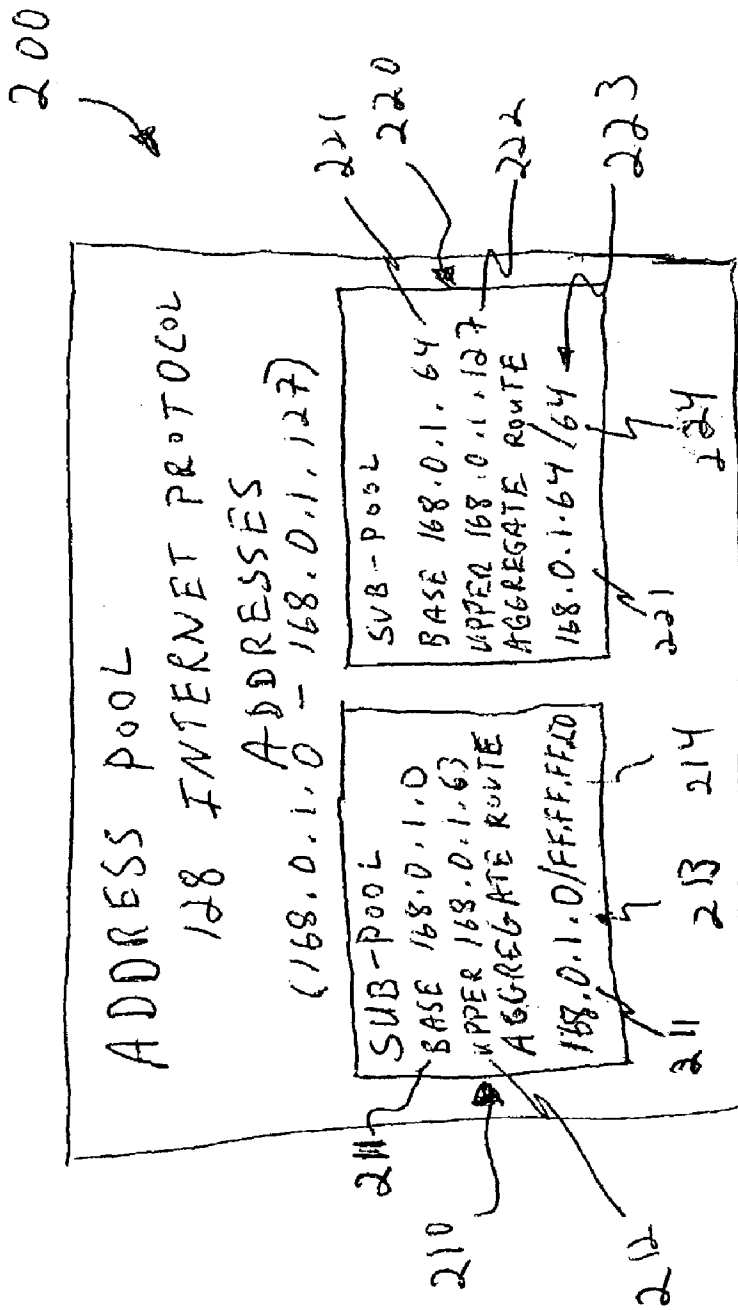 200
ADDRESS POOL
128 INTERNET PROTOCOL
ADDRESSES
(168.0.1.0 - 168.0.1.127)
SUB-POOL
BASE 168.0.1.0
UPPER 168.0.1.63
AGGREGATE ROUTE
168.0.1.0/FF.FF.FF.C0
211
210
212
211
213
214
SUB-POOL
BASE 168.0.1.64
UPPER 168.0.1.127
AGGREGATE ROUTE
168.0.1.64/64
221
220
222
223
221
224